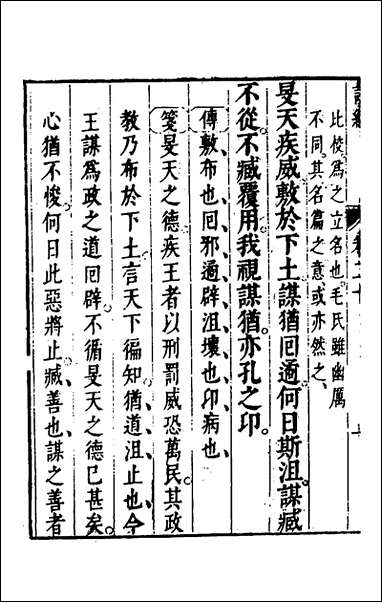 比校爲之立名也毛氏雖幽厲
不同其名篇之意或亦然之
旻天疾威敷於下土謀猶回遹何日斯沮。謀臧
不從不臧覆用我視謀猶亦孔之卭。
傳敷布也回邪遹辟沮壞也卭病也
箋旻天之德疾王者以刑罰威恐萬民其政
教乃布於下土言天下徧知猶道沮止也今
王謀爲政之道回辟不循旻天之德已甚矣
心猶不悛何日此惡將止臧善也謀之善者